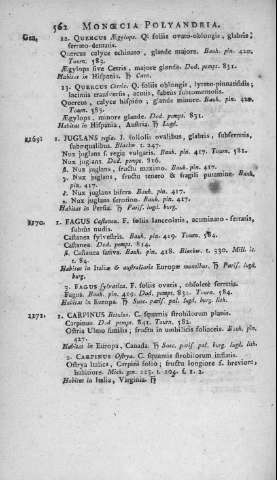 562 MONŒCIA POLYANDRIA.
Gen, 12. QUERCUS Ægylops. Q. foliis ovato-oblongis, glabris,
serrato-dentatis.
Quercus calyce echinato, glande majore. Bauh. pin. 420.
Tourn. 583.
Ægylops sive Cerris, majore glande. Dod. pempt. 831.
Habitat in Hispania. ♄ Cam.
13. QUERCUS Cerris. Q. foliis oblongis, lyrato-pinnatifidis;
laciniis transversis, acutis, subtus subtomentosis.
Quercus, calyce hispido, glande minore. Bauh. pin. 420.
Tourn. 583.
Ægylops, minore glande. Dod. pempt. 831.
Habitat in Hispania, Austria. ♄ Lugd.
1. JUGLANS regia. J. foliolis ovalibus, glabris, subserratis,
subæqualibus. Blackw. t. 247.
Nux juglans s. regia vulgaris. Bauh. pin. 417. Tourn. 581.
Nux juglans. Dod. pempt. 816.
β. Nux juglans, fructu maximo. Bauh. pin. 417.
γ. Nux juglans, fructu tenero & fragili putamine. Bauh.
pin. 417.
δ. Nux juglans bifera. Bauh. pin. 417.
ε. Nux juglans serotina. Bauh. pin. 417.
Habitat in Persia. ♄ Paris. lugd. Hort.
1170. 1. FAGUS Castanea. F. foliis lanceolatis, acuminato-serratis,
subtus nudis.
Castanea sylvestris. Bauh. pin. 419. Tourn. 584.
Castanea. Dod. pempt. 814.
β. Castanea sativa. Bauh. pin. 418. Blackw. t. 330. Mill. ic.
t. 84.
Habitat in Italiæ & australioris Europæ montibus. ♄ Paris. lugd.
burg.
3. FAGUS sylvatica. F. foliis ovatis, obsolete serratis.
Fagus. Bauh. pin. 419. Dod. pempt. 832. Tourn. 584.
Habitat in Europa. ♄ Suec. paris. pal. lugd. burg. lith.
1171. 1. CARPINUS Betulus. C. squamis strobilorum planis.
Carpinus. Dod. pempt. 841. Tourn. 582.
Ostrya Ulmo similis, fructu in umbilicis foliaceis. Bauh. pin.
427.
Habitat in Europa, Canada. ♄ Suec. paris. pal. burg. lugd. lith.
2. CARPINUS Ostrya. C. squamis strobilorum inflatis.
Ostrya Italica, Carpini folio; fructu longiore & breviore,
habitiore. Mich. gen. 223. t. 104. f. 1. 2.
Habitat in Italia, Virginia. ♄